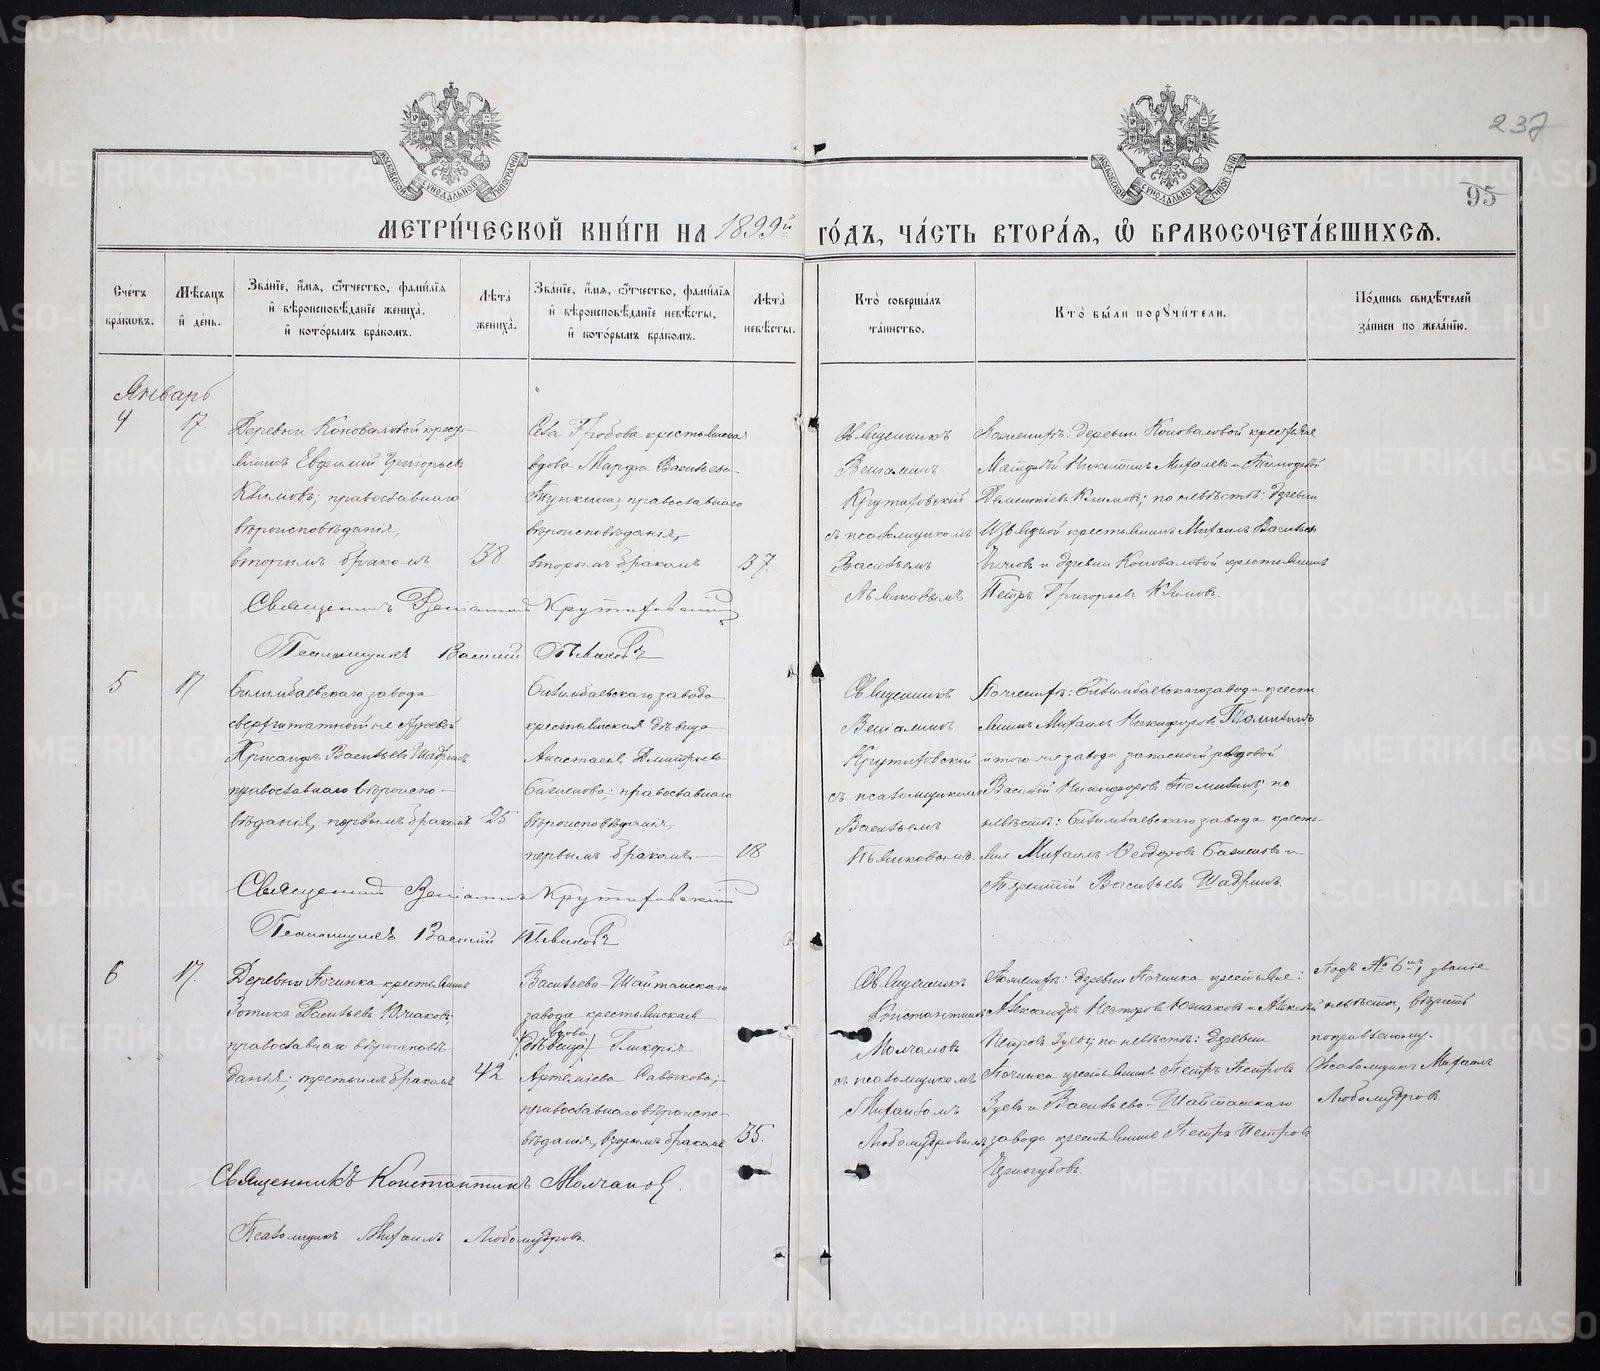 237
95
МОСКОВСКОЙ СѴНОДАЛЬНОЙ ТИПОГРАФІИ
МОСКОВСКОЙ СѴНОДАЛЬНОЙ ТИПОГРАФІИ
МЕТРИ́ЧЕСКОЙ КНИ́ГИ НА 1899й ГО́ДЪ, ЧА́СТЬ ВТОРА́Я, Ѡ҆ БРАКОСОЧЕТА́ВШИХСЯ.
Сче́тъ бра́ковъ.
Мѣ́сяцъ и҆ де́нь.
Зва́нїе, и҆́мя, ѻ҆́тчество, фами́лїя и҆ вѣроисповѣ́данїе жениха̀, и҆ кото́рымъ бра́комъ.
Лѣ́та жениха̀.
Зва́нїе, и҆́мя, ѻ҆́тчество, фами́лїя и҆ вѣроисповѣ́данїе невѣ́сты, и҆ кото́рымъ бра́комъ.
Лѣ́та невѣ́сты.
Кто̀ соверша́лъ та́инство.
Кто̀ бы́ли порꙋчи́тели.
По́дпись свидѣ́телей за́писи по жела́нїю.
Январь
4
17.
Деревни Коноваловой кресть-
янинъ Евфимій Григорьевъ
Климовъ; православнаго
вѣроисповѣданія,
вторымъ бракомъ
38
Села Гробова крестьянская
вдова Марфа Васильева
православнаго
вѣроисповѣданія,
вторымъ бракомъ
37.
Священникъ
Веніаминъ
Крутиховскій
съ псаломщикомъ
Васильемъ
Пьянковымъ
По женихѣ: деревни Коноваловой крестьяне
Матфѣй Никитинъ Михалевъ и Тимофей
Дементіевъ Климовъ; по невѣстѣ: деревни
крестьянинъ Михаилъ Васильевъ
и деревни Коноваловой крестьянинъ
Петръ Григорьевъ Климовъ.
Священникъ Веніаминъ Крутиховскій
Псаломщикъ Василій Пьянковъ
5
17
Билимбаевскаго завода
Хрисанфъ Васильевъ Шадринъ
православнаго вѣроиспо-
вѣданія, первымъ бракомъ
25
Билимбаевскаго завода
крестьянская дѣвица
Анастасія Дмитріева
православнаго
вѣроисповѣданія,
первымъ бракомъ.
18
Священникъ
Веніаминъ
Крутиховскій
съ псаломщикомъ
Васильемъ
Пьянковымъ
По женихѣ: Билимбаевскаго завода кресть-
янинъ Михаилъ Никифоровъ Томилинъ
и того-же завода запасной рядовой
Василій Никифоровъ Томилинъ; по
невѣстѣ: Билимбаевскаго завода кресть-
яне Михаилъ Ѳеодоровъ и
Васильевъ Шадринъ.
Священникъ Веніаминъ Крутиховскій
Псаломщикъ Василій Пьянковъ
6
17.
Деревни Починка крестьянинъ
Зотикъ Васильевъ
православнаго вѣроисповѣ-
данія; третьимъ бракомъ
42
Васильево-Шайтанскаго
завода крестьянская
вдова
(дѣвица) Гликерія
Артеміева Савыкова;
православнаго вѣроиспо-
вѣданія, вторымъ бракомъ
35.
Священникъ
Константинъ
Молчановъ
съ псаломщикомъ
Михаиломъ
Любомудровымъ
По женихѣ: деревни Починка крестьяне:
Александръ Несторовъ и Алексѣй
Петровъ Зуевъ; по невѣстѣ: деревни
Починка крестьянинъ Петръ Петровъ
Зуевъ и Васильево-Шайтанскаго
завода крестьянинъ Петръ Петровъ
Черногубовъ.
Подъ № 6мъ, званіе
невѣсты, вѣрить
поправленому.
Псаломщикъ Михаилъ
Любомудровъ
Священникъ Константинъ Молчановъ.
Псаломщикъ Михаилъ Любомудровъ
METRIKI.GASO-URAL.RU